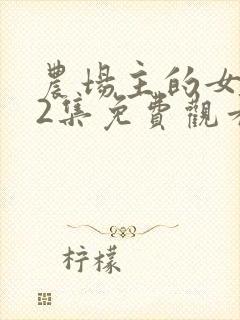 農場主的女
2集免費觀
柠檬